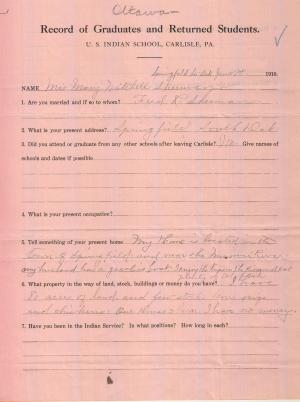 Ottawa
Record of Graduates and Returned Students.
U. S. INDIAN SCHOOL, CARLISLE, PA.
Springfield So Dak 1910.
NAME Mrs Mary Mitchell Sherman
1. Are you married and if so to whom? Fred R. Sherman
2. What is your present address? Springfield South Dak
3. Did you attend or graduate from any other schools after leaving Carlisle? No Give names of
schools and dates if possible.
4. What is your present occupation?
5. Tell something of your present home. My Home is located in the
town of Springfield and near the Missouri River
my husband has a gasoline boat
6. What property in the way of land, stock, buildings or money do you have? I have
80 acres of land and few stock
and chickens. Our House I have no money.
7. Have you been in the Indian Service? In what positions? How long in each?